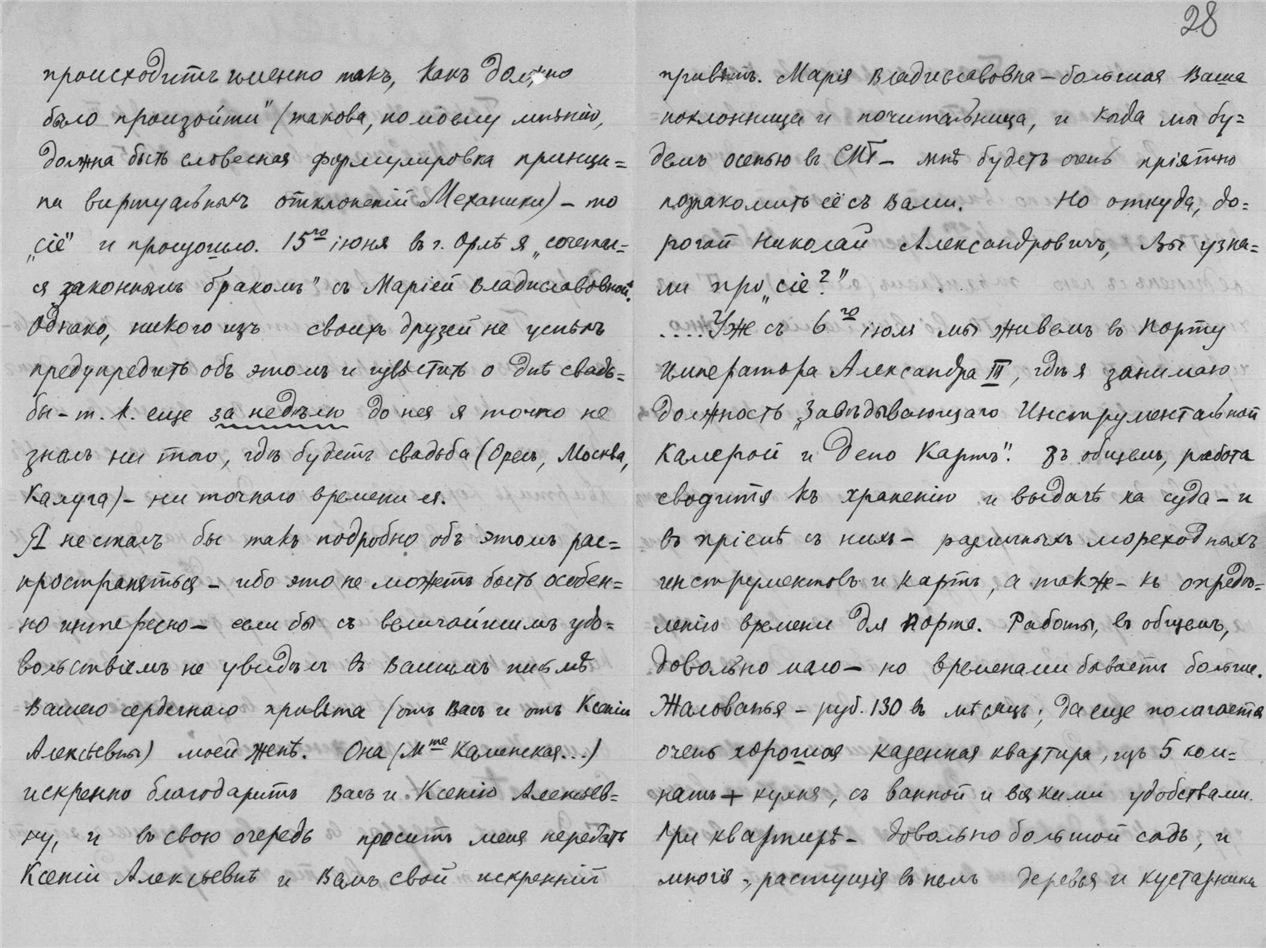 происходитъ именно такъ, какъ должно
было произойти" (такова, по моему мнѣнію,
должна быть словесная формулировка принци=
па виртуальныхъ отклоненій Механики) – то
„сіе" и произошло. 15го іюня въ г. Орлѣ я „сочетал-
ся законнымъ бракомъ" съ Маріей Владиславовной.
Однако, никого изъ своихъ друзей не успѣлъ
предупредить объ этомъ и извѣстить о днѣ свадь=
бы – т. к. еще за недѣлю до нея я точно не
зналъ ни того, гдѣ будетъ свадьба (Орелъ, Москва,
Калуга) – ни точнаго времени ея.
Я не сталъ бы такъ подробно объ этомъ рас=
пространяться – ибо это не можетъ быть особен=
но интересно – если бы съ величайшимъ удо=
вольствіемъ не увидѣлъ въ Вашемъ письмѣ
Вашего сердечнаго привѣта (отъ Васъ и отъ Ксеніи
Алексѣевны) моей женѣ. Она (Mme Каменская...)
искренно благодаритъ Васъ и Ксенію Алексѣев=
ну, и въ свою очередь проситъ меня передать
Ксеніи Алексѣевнѣ и Вамъ свой искренній
28
привѣтъ. Марія Владиславовна – большая Ваша
поклонница и почитательница, и когда мы бу=
демъ осенью въ СПб – мнѣ будетъ очень пріятно
познакомить её съ Вами. Но откуда, до=
рогой Николай Александровичъ, Вы узна=
ли про „сіе?"
....Уже съ 6го іюля мы живемъ въ Порту
Императора Александра III, гдѣ я занимаю
должность „Завѣдывающаго Инструментальной
Камерой и Депо Картъ". Въ общемъ, работа
сводится къ храненію и выдачѣ на суда – и
въ пріемѣ съ нихъ – различныхъ мореходныхъ
инструментовъ и картъ, а также – къ опредѣ=
ленію времени для Порта. Работы, въ общемъ,
довольно мало – но временами бываетъ больше.
Жалованья – руб. 130 въ мѣсяцъ; да еще полагается
очень хорошая казенная квартира, изъ 5 ком=
натъ + кухня, съ ванной и всякими удобствами.
При квартирѣ – довольно большой садъ, и
многія, растущія въ немъ деревья и кустарники